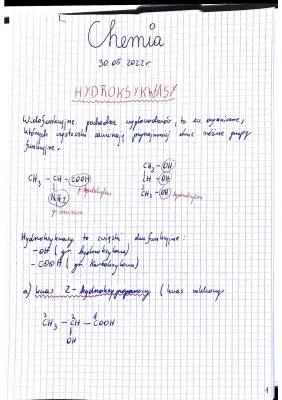 Chemia
30.05.2022r
HYDROKSYKWASY
Wielofunkcyjne pochodne węglowodorów, to zw. organiczne,
których cząsteczki zawierają przynajmniej dwie różne grupy
funkcyjne.
CH₂ - OH
CH₃ - CH - COOH
CH - OH
NH₂
CH₂ - OH
Hydroksykwasy to związki dwufunkcyjne:
-OH (gr. hydroksylowa)
-COOH (gr. karboksylowa)
a) kwas 2-hydroksypropanowy (kwas mlekowy
³CH₃ - ²CH - ¹COOH
OH
1